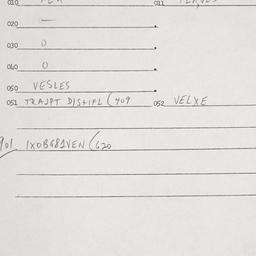 010
011
020 —
030 0
040 0
050 VESLES
051 TRAJPT DISTIFL (409 052 VELXE
901 1X0BG81VEN (620